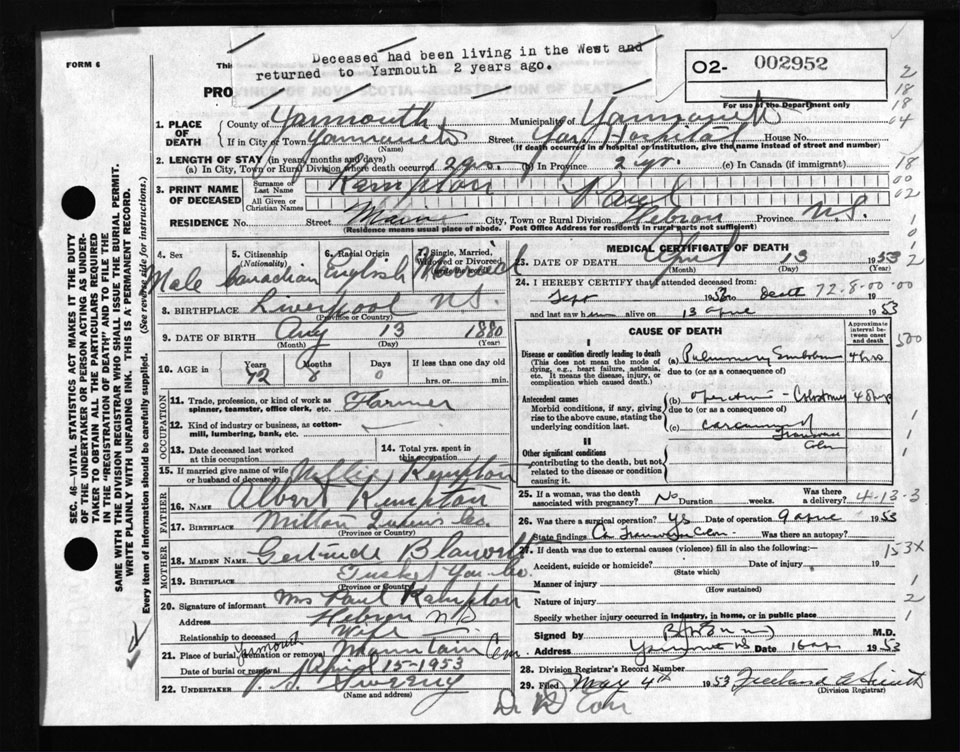 FORM 6
This
Deceased had been living in the West and
returned to Yarmouth 2 years ago.
PROVINCE OF NOVA SCOTIA—REGISTRATION OF DEATH
O2- 002952
For use of the Department only
2
18
18
04
1. PLACE OF DEATH
County of Yarmouth Municipality of Yarmouth
If in City or Town Yarmouth Street Yar. Hospital House No.
(Name) (If death occurred in a hospital or institution, give the name instead of street and number)
2. LENGTH OF STAY (in years, months and days)
(a) In City, Town or Rural Division where death occurred 2 yrs. (b) In Province 2 yr. (c) In Canada (if immigrant)
18
3. PRINT NAME OF DECEASED
Surname or Last Name Kempton
All Given or Christian Names Paul
00
02
RESIDENCE No. Street Main City, Town or Rural Division Hebron Province N.S.
(Residence means usual place of abode. Post Office Address for residents in rural parts not sufficient)
1
0
4. Sex Male
5. Citizenship (Nationality) Canadian
6. Racial Origin English
7. Single, Married, Widowed or Divorced Married
8. BIRTHPLACE Liverpool N.S.
(Province or Country)
9. DATE OF BIRTH Aug 13 1880
(Month) (Day) (Year)
10. AGE in Years 72 Months 8 Days 0 If less than one day old
hrs. or min.
OCCUPATION
11. Trade, profession, or kind of work as
spinner, teamster, office clerk, etc. Farmer
12. Kind of industry or business, as cotton-
mill, lumbering, bank, etc.
13. Date deceased last worked
at this occupation
14. Total yrs. spent in
this occupation
15. If married give name of wife
or husband of deceased Kempton
FATHER
16. NAME Albert Kempton
17. BIRTHPLACE Milton Queens Co.
(Province or Country)
MOTHER
18. MAIDEN NAME Gertrude
19. BIRTHPLACE Tusket Yar. Co.
(Province or Country)
20. Signature of informant Mrs Paul Kempton
Address Hebron NS
Relationship to deceased Wife
21. Place of burial, cremation or removal Yarmouth Mountain Cem
Date of burial or removal April 15-1953
22. UNDERTAKER V. S. Sweeny
(Name and address)
MEDICAL CERTIFICATE OF DEATH
23. DATE OF DEATH April 13 1953
(Month) (Day) (Year)
2
24. I HEREBY CERTIFY that I attended deceased from:
Sept 19 to Death 72-8-00-00 19
and last saw h alive on 13 April 1953
CAUSE OF DEATH
Approximate interval between onset and death
500
I
Disease or condition directly leading to death
(This does not mean the mode of
dying, e.g., heart failure, asthenia,
etc. It means the disease, injury, or
complication which caused death.)
(a) Pulmonary Embolism 4 hrs
due to (or as a consequence of)
Antecedent causes
Morbid conditions, if any, giving
rise to the above cause, stating the
underlying condition last.
(b) operation - Colostomy 4 days
due to (or as a consequence of)
(c) carcinoma of
Transverse
Colon
1
1
1
II
Other significant conditions
contributing to the death, but not
related to the disease or condition
causing it.
25. If a woman, was the death
associated with pregnancy? No Duration weeks. Was there a delivery?
4-13-3
26. Was there a surgical operation? yes Date of operation 9 April 1953
State findings Ca Transverse Colon Was there an autopsy?
27. If death was due to external causes (violence) fill in also the following:—
153X
Accident, suicide or homicide? Date of injury 19
(State which)
Manner of injury
(How sustained)
1
Nature of injury
2
Specify whether injury occurred in industry, in home, or in public place
1
Signed by M.D.
Address Yarmouth NS Date 16 Ap 1953
28. Division Registrar's Record Number
29. Filed May 4th 1953
(Division Registrar)
SEC. 46 - VITAL STATISTICS ACT MAKES IT THE DUTY
OF THE UNDERTAKER OR PERSON ACTING AS UNDER-
TAKER TO OBTAIN ALL THE PARTICULARS REQUIRED
IN THE "REGISTRATION OF DEATH" AND TO FILE THE
SAME WITH THE DIVISION REGISTRAR WHO SHALL ISSUE THE BURIAL PERMIT.
WRITE PLAINLY WITH UNFADING INK. THIS IS A PERMANENT RECORD.
Every item of information should be carefully supplied. (See reverse side for instructions.)